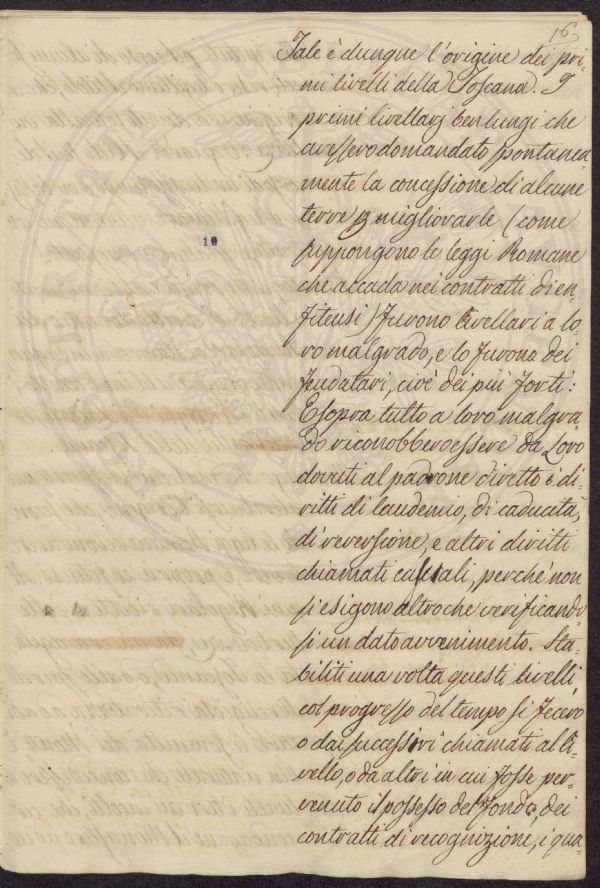 16
Tale è dunque l'origine dei pri-
mi livelli della Toscana. I
primi livellarj ben lungi che
avessero domandato spontanea-
mente la concessione di alcune
terre p migliorarle (come
suppongono le leggi Romane
che accada nei contratti d'en-
fiteusi) furono livellari a lo-
ro malgrado, e lo furono dei
feudatari, cioè dei più forti:
E sopra tutto a loro malgra-
do riconobbero essere da Loro
dovuti al padrone diretto i di-
ritti di laudemio, di caducità,
di reversione, e altri diritti
chiamati casuali, perchè non
si esigono altro che verificando-
si un dato avvenimento. Sta-
biliti una volta questi livelli
col progresso del tempo si fecero
o dai successori chiamati al li-
vello, o da altri in cui fosse per-
venuto il possesso del fondo, dei
contratti di recognizione, i qua-
10